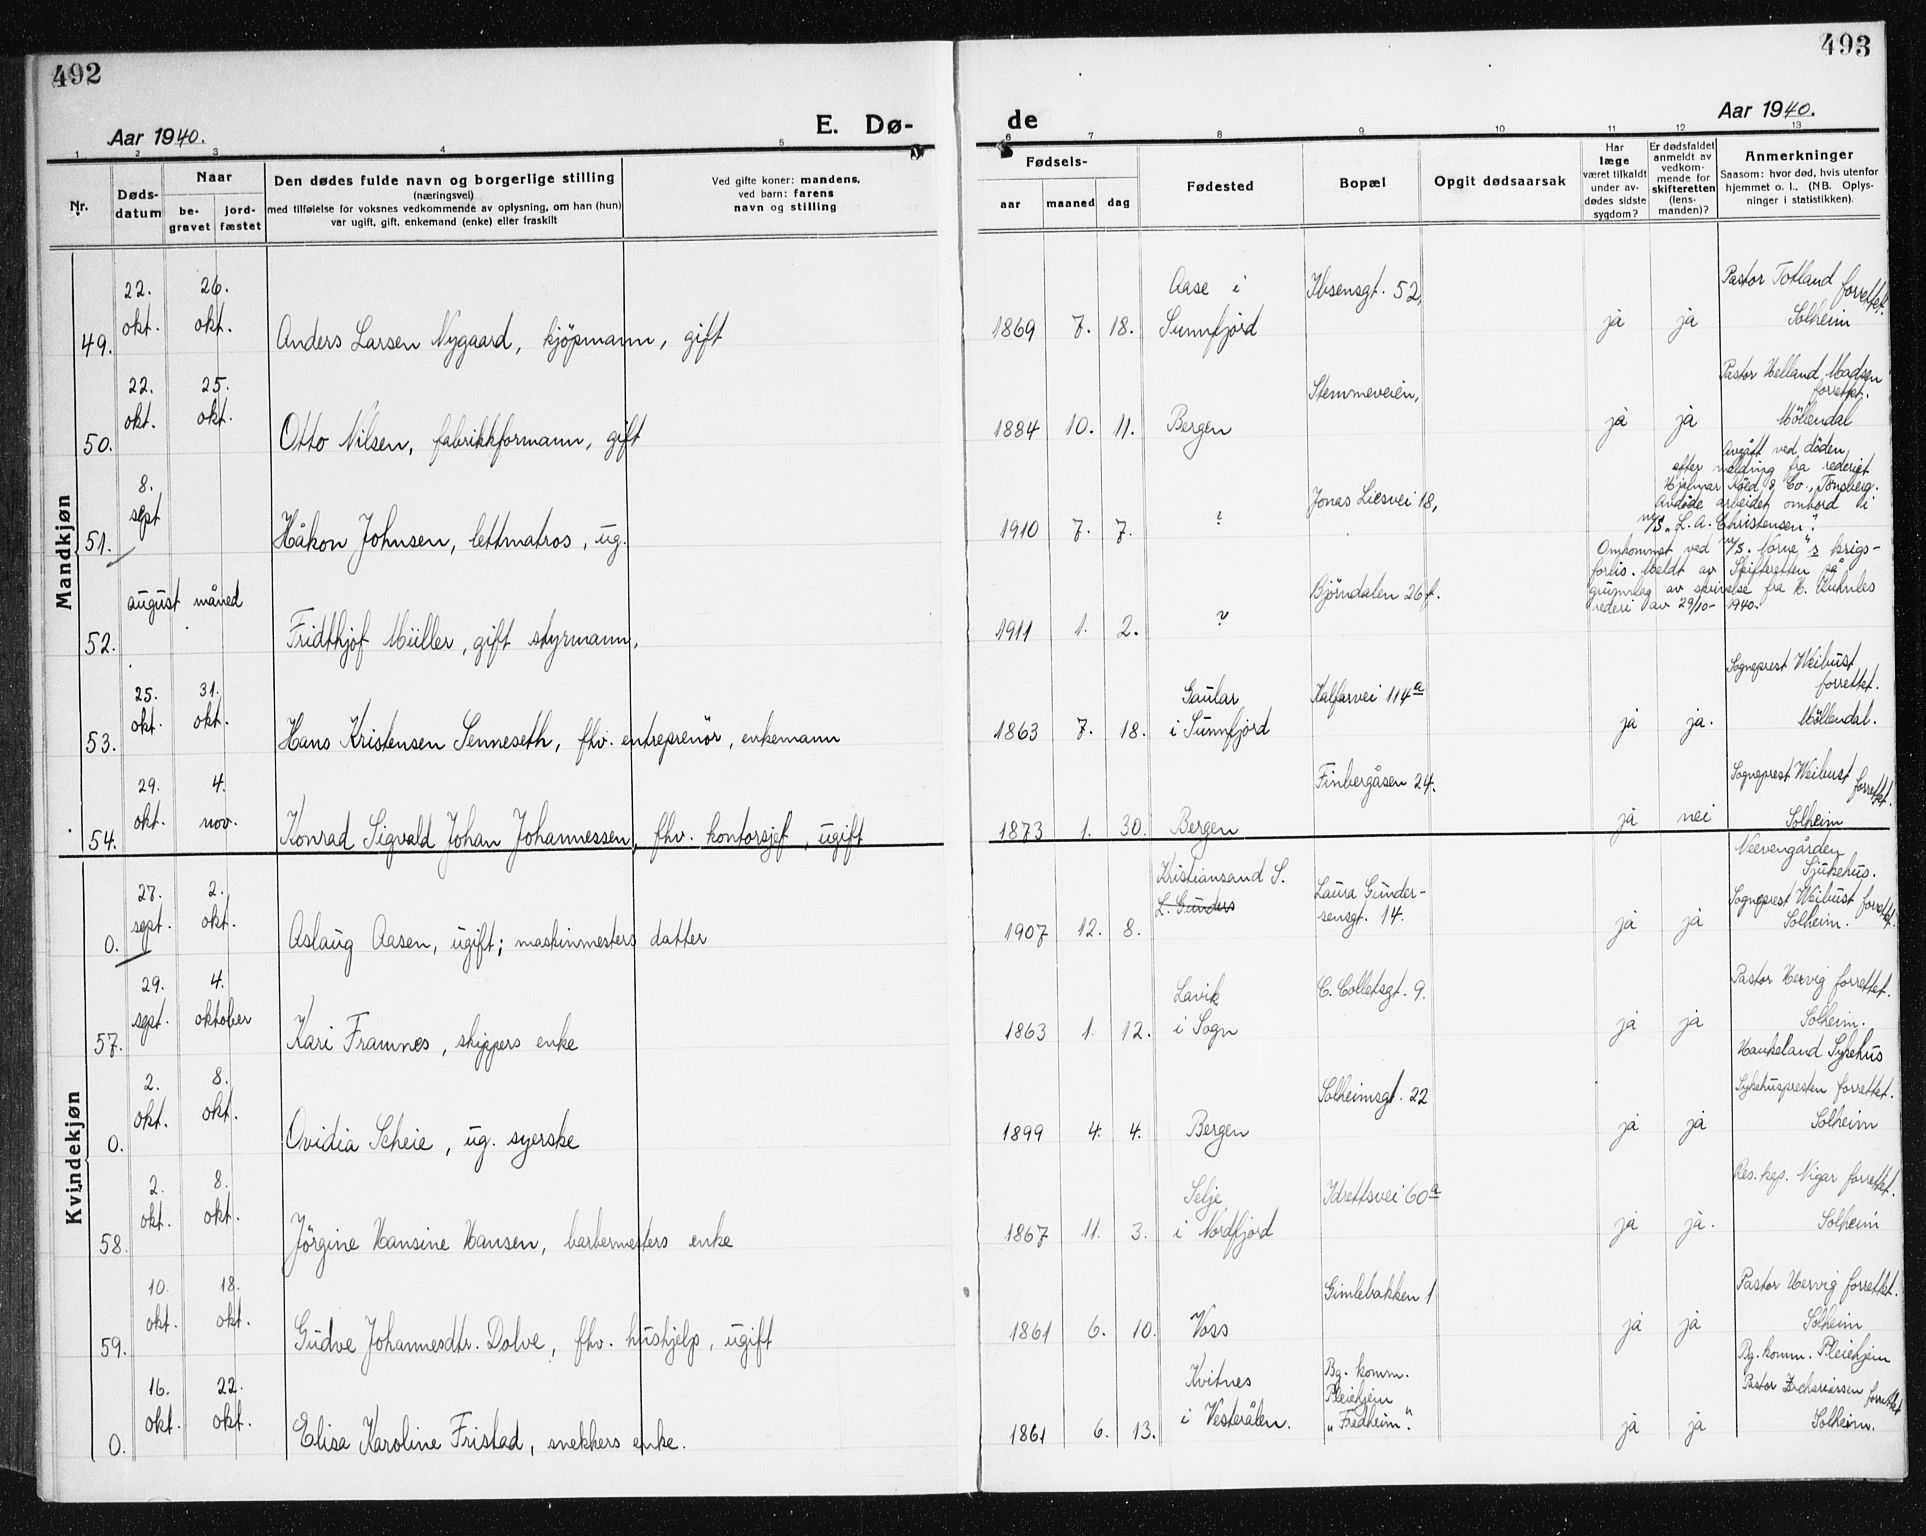 492
493
Aar 1940.
E. Dø-
de
Aar 1940.
1 2 3 4 5 6 7 8 9 10 11 12 13
Nr.
Døds-
datum
Naar
be-
gravet
jord-
fæstet
Den dødes fulde navn og borgerlige stilling
(næringsvei)
med tilføielse for voksnes vedkommende av oplysning, om han (hun)
var ugift, gift, enkemand (enke) eller fraskilt
Ved gifte koner: mandens,
ved barn: farens
navn og stilling
Fødsels-
aar maaned dag
Fødested
Bopæl
Opgit dødsaarsak
Har
læge
været tilkaldt
under av-
dødes sidste
sygdom?
Er dødsfaldet
anmeldt av
vedkom-
mende for
skifteretten
(lens-
manden)?
Anmerkninger
Saasom: hvor død, hvis utenfor
hjemmet o. l., (NB. Oplys-
ninger i statistikken).
Mandkjøn
22. 26. Aase i Ibsensgt. 52, Pastor Totland forrettet.
okt. okt. Solheim
49. Anders Larsen Nygaard, kjöpmann, gift 1869 7. 18. Sunnfjord ja ja
22. 25. Stemmeveien, Pastor Helland Madsen
forrettet.
okt. okt. Möllendal
50. Otto Nilsen, fabrikkformann, gift 1884 10. 11. Bergen ja ja
Avgått ved döden
efter melding fra rederiet
8. Hjelmar Röed & Co., Tönsberg.
sept Jonas Liesvei 18, Avdöde arbeidet ombord i
M/S "L. A. Christensen".
51. Håkon Johnsen, lettmatros, ug. 1910 7. 7. ?
Omkommet ved M/S. "Norne"s krigs-
forlis. Meldt av Skifteretten på
august måned Björndalen 26 f. grunnlag av skrivelse fra H. Kuhnles
rederi av 29/10-1940.
52. Fridthjof Müller, gift styrmann, 1911 1. 2. ?
25. 31. Gaular Kalfarvei 114a Sogneprest Weibust
forrettet.
okt. okt. Möllendal.
53. Hans Kristensen Senneseth, fhv. entreprenör, enkemann 1863 7. 18. i Sunnfjord ja ja.
29. 4. Finbergåsen 24. Sogneprest Weibust forrettet.
okt. nov. Solheim
54. Konrad Sigvald Johan Johannessen, fhv. kontorsjef, ugift 1873 1. 30. Bergen ja nei
Kvindekjøn
Neevengården
Sjukehus.
27. 2. Kristiansand S. Laura Gunder- Sogneprest Weibust forrettet.
sept. okt. L. Gunders sensgt. 14. Solheim.
0. Aslaug Aasen, ugift; maskinmesters datter 1907 12. 8. ja ja
29. 4. Lavik C. Colletsgt. 9. Pastor Hervig forrettet.
sept. oktober Solheim.
57. Kari Framnes, skippers enke 1863 1. 12. i Sogn ja ja
Haukeland Sykehus
2. 8. Solheimsgt. 22 Sykehuspresten forrettet.
okt. okt. Solheim
0. Ovidia Scheie, ug. syerske 1899 4. 4. Bergen ja ja
2. 8. Selje Idrettsvei 60a Res. kap. Nigar forrettet.
okt. okt. Solheim
58. Jörgine Hansine Hansen, barbermesters enke 1867 11. 3. i Nordfjord ja ja.
10. 18. Gimlebakken 1 Pastor Hervig forrettet.
okt. okt. Solheim
59. Gudve Johannesdtr. Dolve, fhv. hushjelp, ugift 1861 6. 10. Voss ja ja
Bg. komm. Pleiehjem
16. 22. Kvitnes Bg. komm. Pastor Zachariassen forrettet
okt. okt. Pleiehjem Solheim.
0. Elisa Karoline Fristad, snekkers enke. 1861 6. 13. i Vesterålen. "Fredheim". ja ja